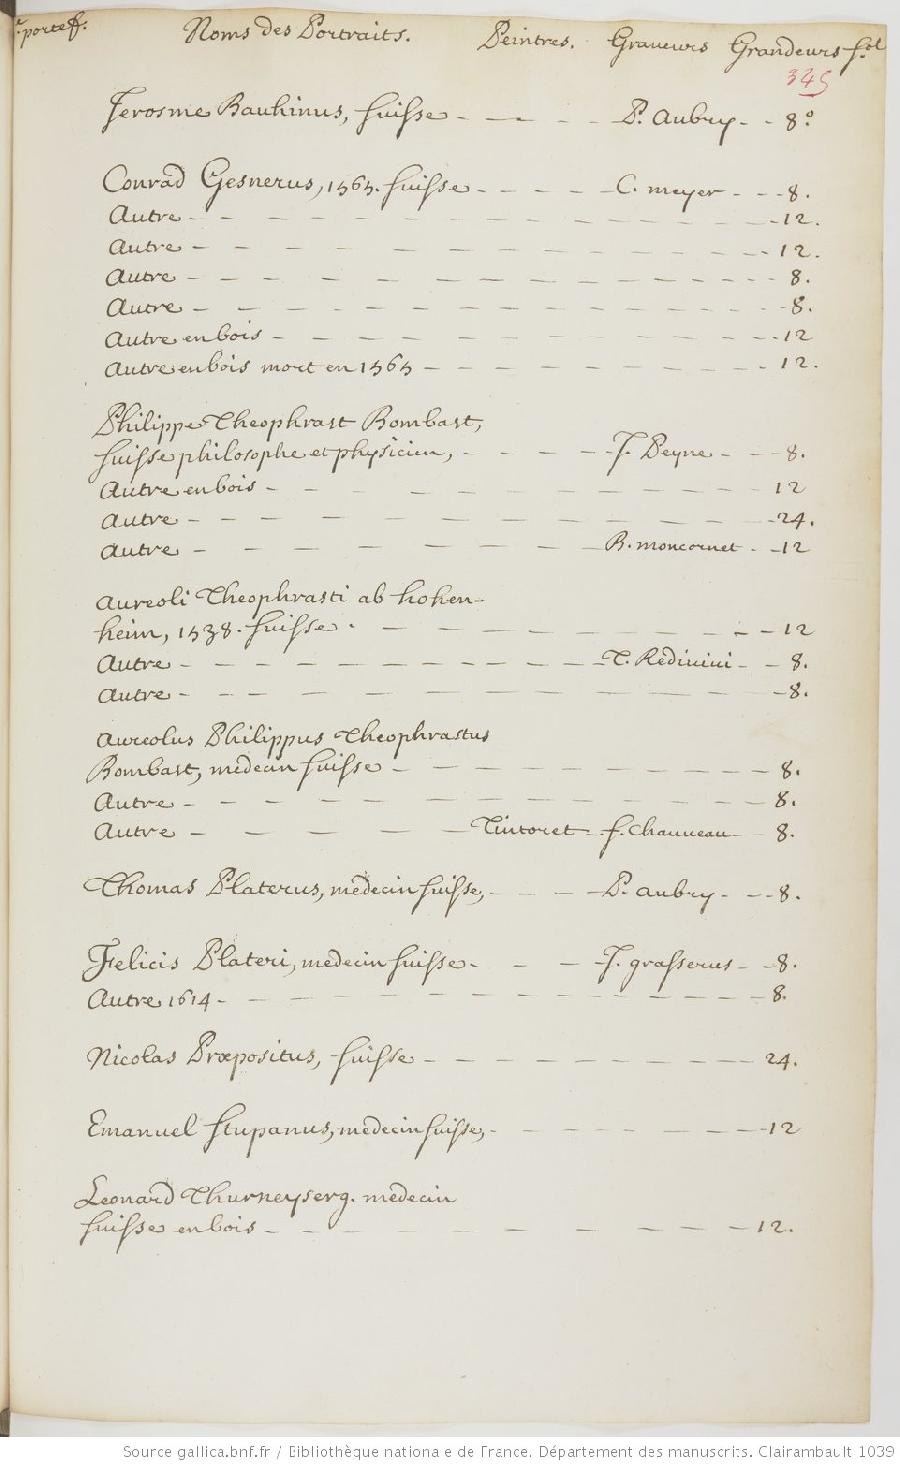 portef. Noms des Portraits. Peintres. Graveurs Grandeurs fol
345
Jerosme Bauhinus, suisse - - - - P. Aubry - - 8º
Conrad Gesnerus, 1565. suisse - - - - C. meyer - - - 8.
Autre - - - - - - - - - - - - - - 12.
Autre - - - - - - - - - - - - - - 12.
Autre - - - - - - - - - - - - - - 8.
Autre - - - - - - - - - - - - - - 8.
Autre en bois - - - - - - - - - - - - 12
Autre en bois mort en 1565 - - - - - - - - - 12.
Philippe Theophrast Bombast,
suisse philosophe et physicien, - - - - J. Peyne - - - 8.
Autre en bois - - - - - - - - - - - - 12
Autre - - - - - - - - - - - - - - 24.
Autre - - - - - - - B. moncornet - - 12
Aureoli Theophrasti ab hohen-
heim, 1538. suisse - - - - - - - - - - - 12
Autre - - - - - - - - - - T. Redivivi - - 8.
Autre - - - - - - - - - - - - - - 8.
Aureolus Philippus Theophrastus
Bombast, medecin suisse - - - - - - - - - - 8.
Autre - - - - - - - - - - - - - - 8.
Autre - - - - - Tintoret - f. Chauveau - 8.
Thomas Platerus, medecin suisse, - - - P. aubry - - - 8.
Felicis Plateri, medecin suisse - - - J. grasserus - - 8.
Autre 1614 - - - - - - - - - - - - - 8.
Nicolas Præpositus, suisse - - - - - - - - - - 24.
Emanuel Stupanus, medecin suisse, - - - - - - - - 12
Leonard Thurneyserg. medecin
suisse en bois - - - - - - - - - - - - 12.
Source gallica.bnf.fr / Bibliothèque nationale de France. Département des manuscrits. Clairambault 1039